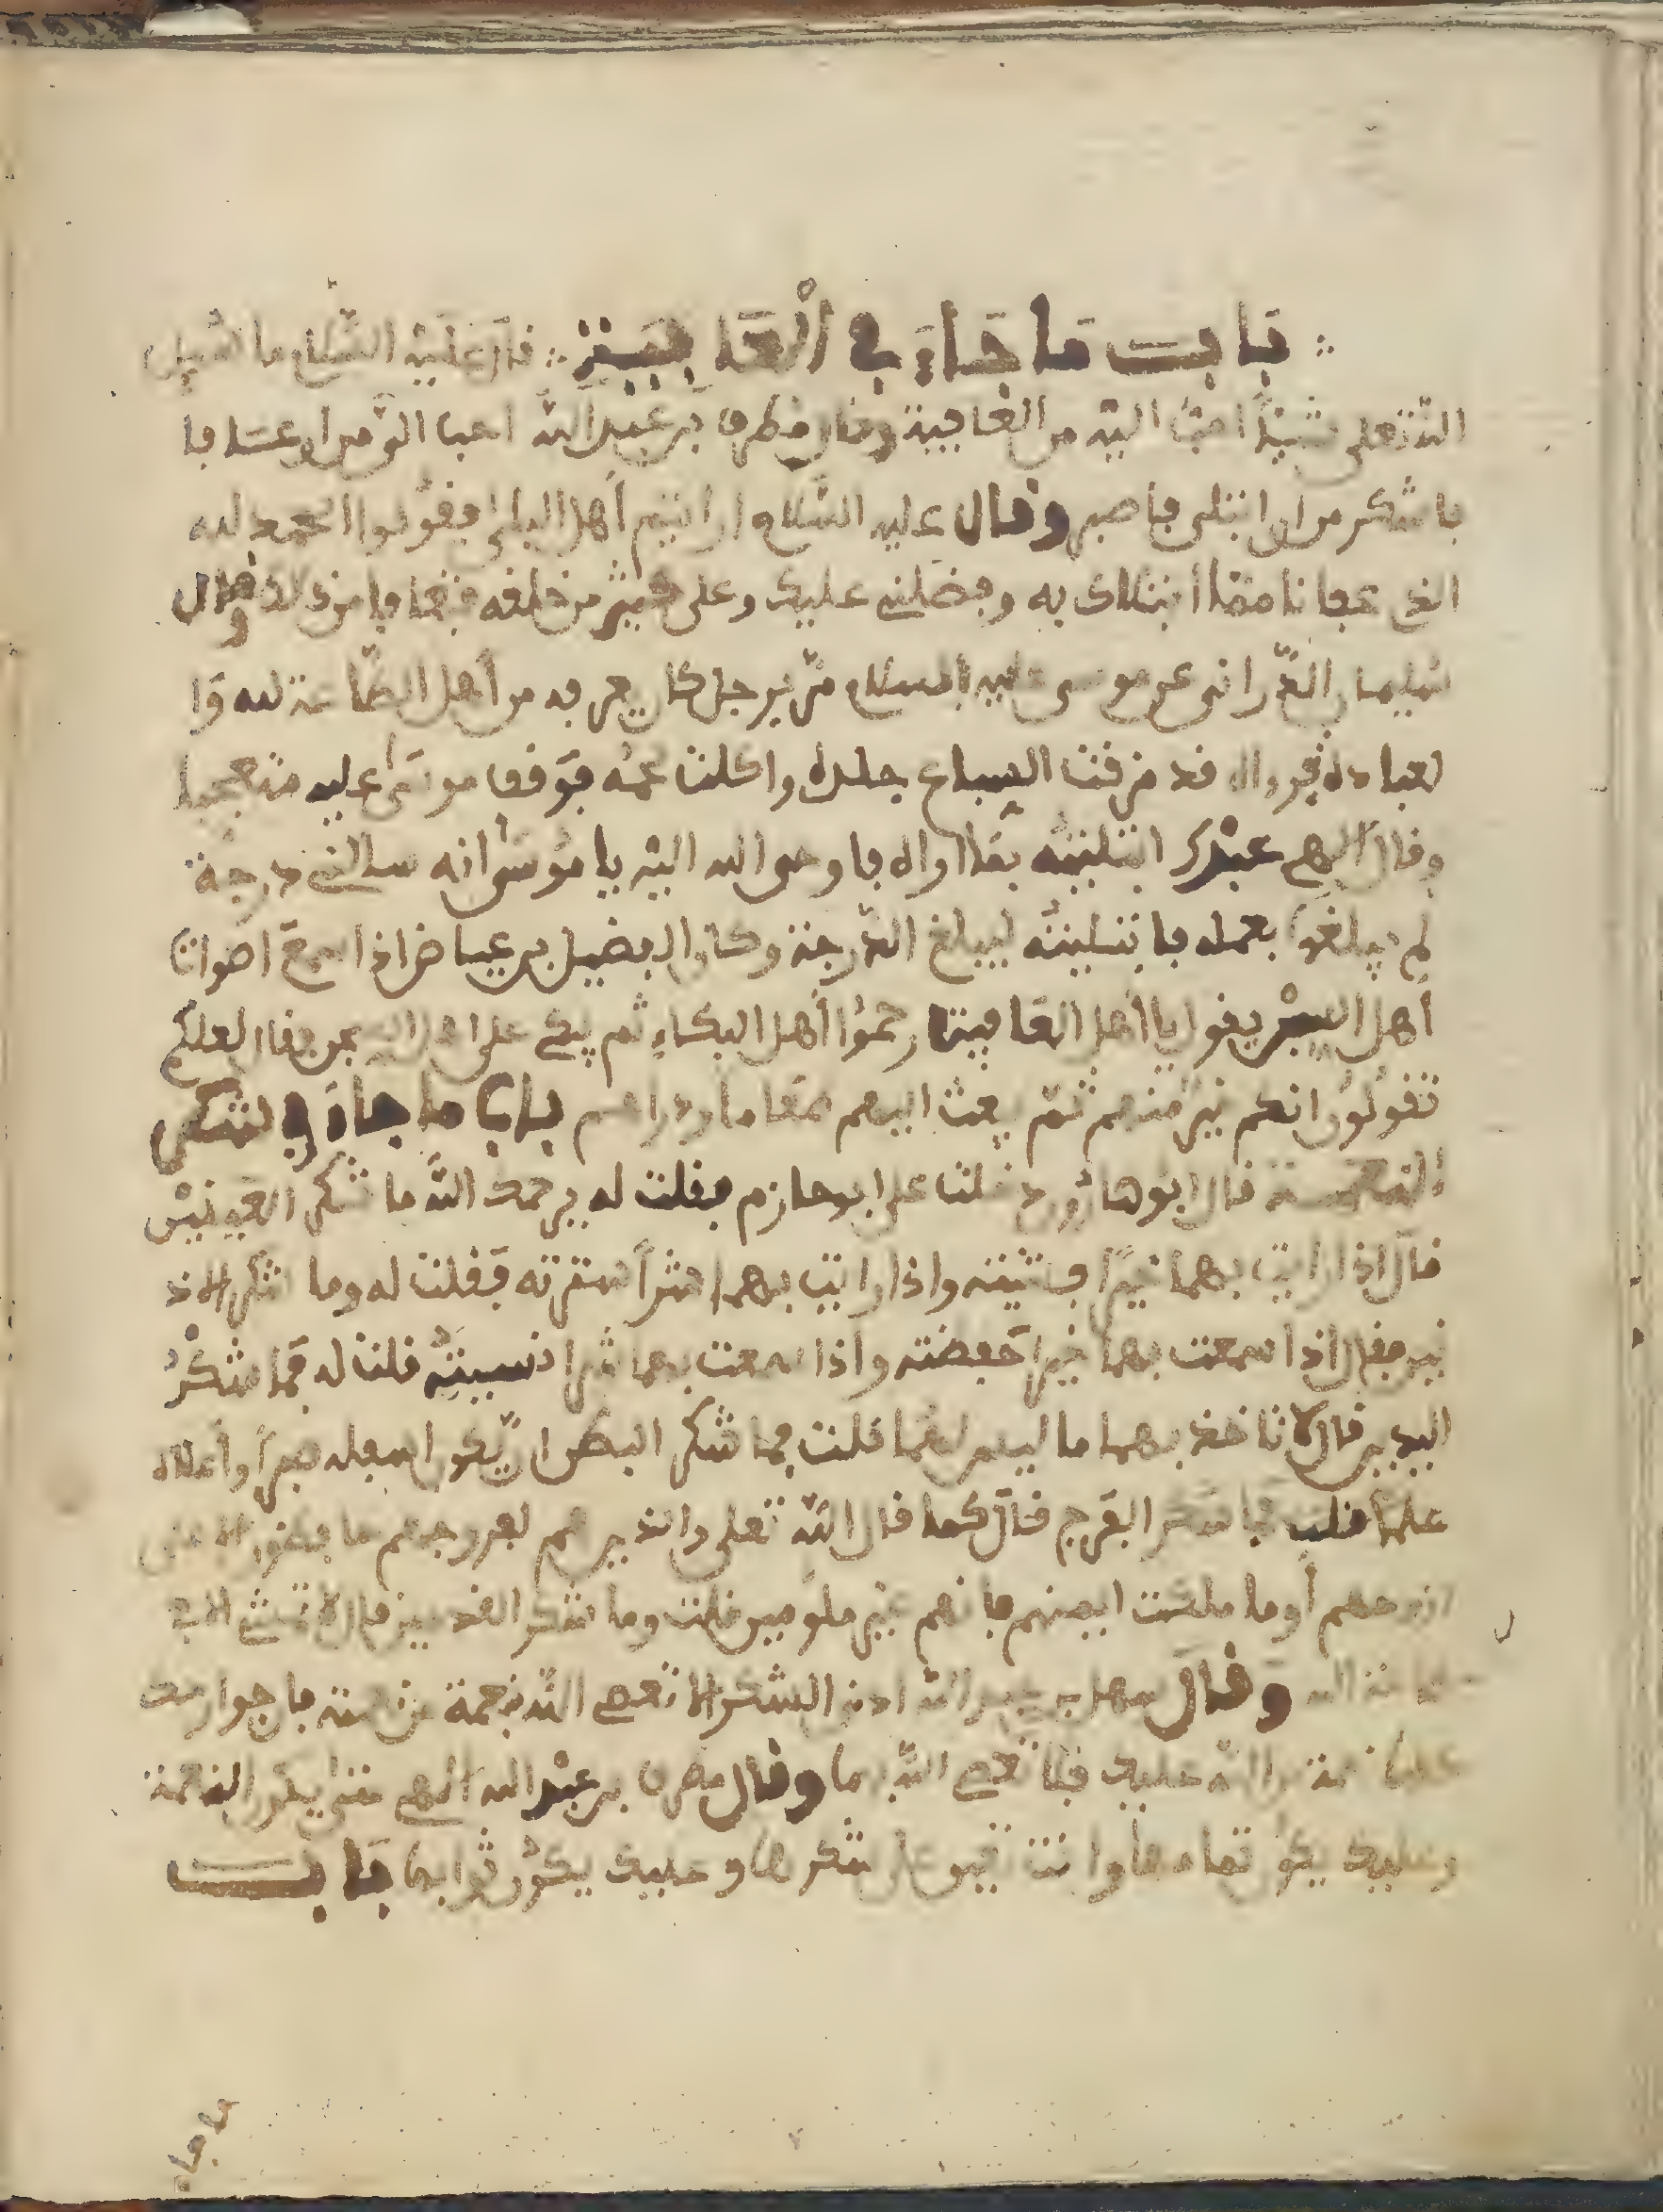 باب ما جاء في العافية قال عليه السلام ما سيل
الله تعلى شيئا احب اليه من العافية وقال مطرف بن عبد الله احب الي من ان عسا فا
فاشكر من ان ابتلى فاصبر وقال عليه السلام ان رايتم أهل البلى فقولوا الحمد لله
الذي عافانا مما ابتلاك به وفضلني عليك وعلى كثير من خلفه فيعافا من ذلك وقال
سليمان الدراني عن موسى عليه السلام مر برجل كان يعرفه من أهل الطاعة لله وا
لعبادة قد مزقت السباع جلده واكلت لحمه فوقف موسى عليه متعجبا
وقال الهي عبدك ابتليته بما اراه فاوحى الله اليه يا موسى انه سالني درجة
لم يبلغها بعمله فابتليته ليبلغ الدرجة وكان الفضيل بن عياض اذا سمع اصوات
أهل السجن يقول يا أهل العافية ارحموا أهل البكاء ثم يبكي على لعلكم
تقولون انكم خير منهم ثم يبعث اليهم طعاما ودراهم باب ما جاء في شكر
النعمة قال ابو هارون دخلت على ابو حازم فقلت له يرحمك الله ما شكر العينين
قال اذا رايت بهما خيرا واذا رايت بهما شرا سترته فقلت له وما شكر الاذ
نين فقال اذا سمعت بهما خيرا حفضته واذا سمعت بهما شرا نسيته قلت له فما شكر
اليدين قال لا تاخذ بهما ما ليس لهما قلت فما شكر البطن ان يكون اسفله صبرا وأعلاه
علما قلت فما شكر الفرج قال كما قال الله تعلى والذين هم لفروجهم حافظون الا على
ازوجهم أو ما ملكت ايمنهم فانهم غير ملومين قلت وما شكر القدمين قال لا تمشي الا في
طاعة الله وقال سهل بن عبد الله ادنى الشكر الا تعصي الله بنعمة من نعمه فاجوارحك
كلها نعمة من الله عليك فلا تعصي الله بها وقال مطرف بن عبد الله الهي منك النعمة
وعليك تمامها وانت تعين على شكرها وعليك يكون ثوابها باب
ما جاء